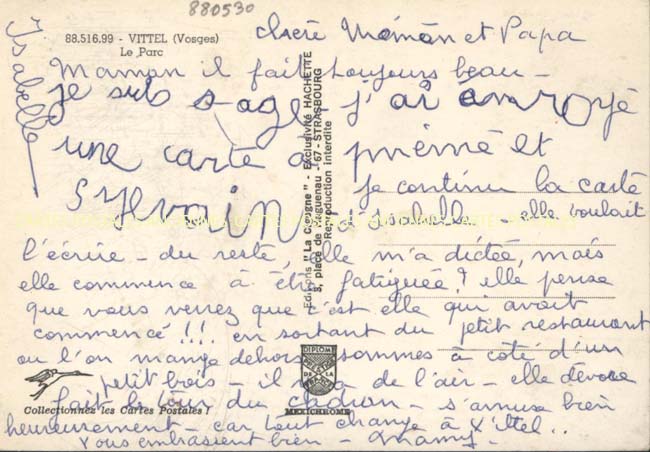 880530
88.516.99 - VITTEL (Vosges)
Le Parc
Isabelle
chere Maman et Papa
Maman il fait toujours beau -
je suis sage j'ai envoyé
une carte a mémé et
Sylvain
je continu la carte
d'isabelle - elle voulait
l'écrire - du reste, elle m'a dictée, mais
elle commence à être fatiguée ? elle pense
que vous verrez que c'est elle qui avait
commencé !!! en sortant du petit restaurant
ou l'on mange dehors sommes à coté d'un
petit bois - il y a de l'air - elle
fait le tour du s'amuse bien
heureusement - car tout change à Vittel..
vous embrassent bien - Mamy -
Editions "La Cigogne" - Exclusivité HACHETTE
3, place de Haguenau - 67 - STRASBOURG
Reproduction interdite
DIPLOME
DE LA
MEXICHROME
Collectionnez les Cartes Postales !